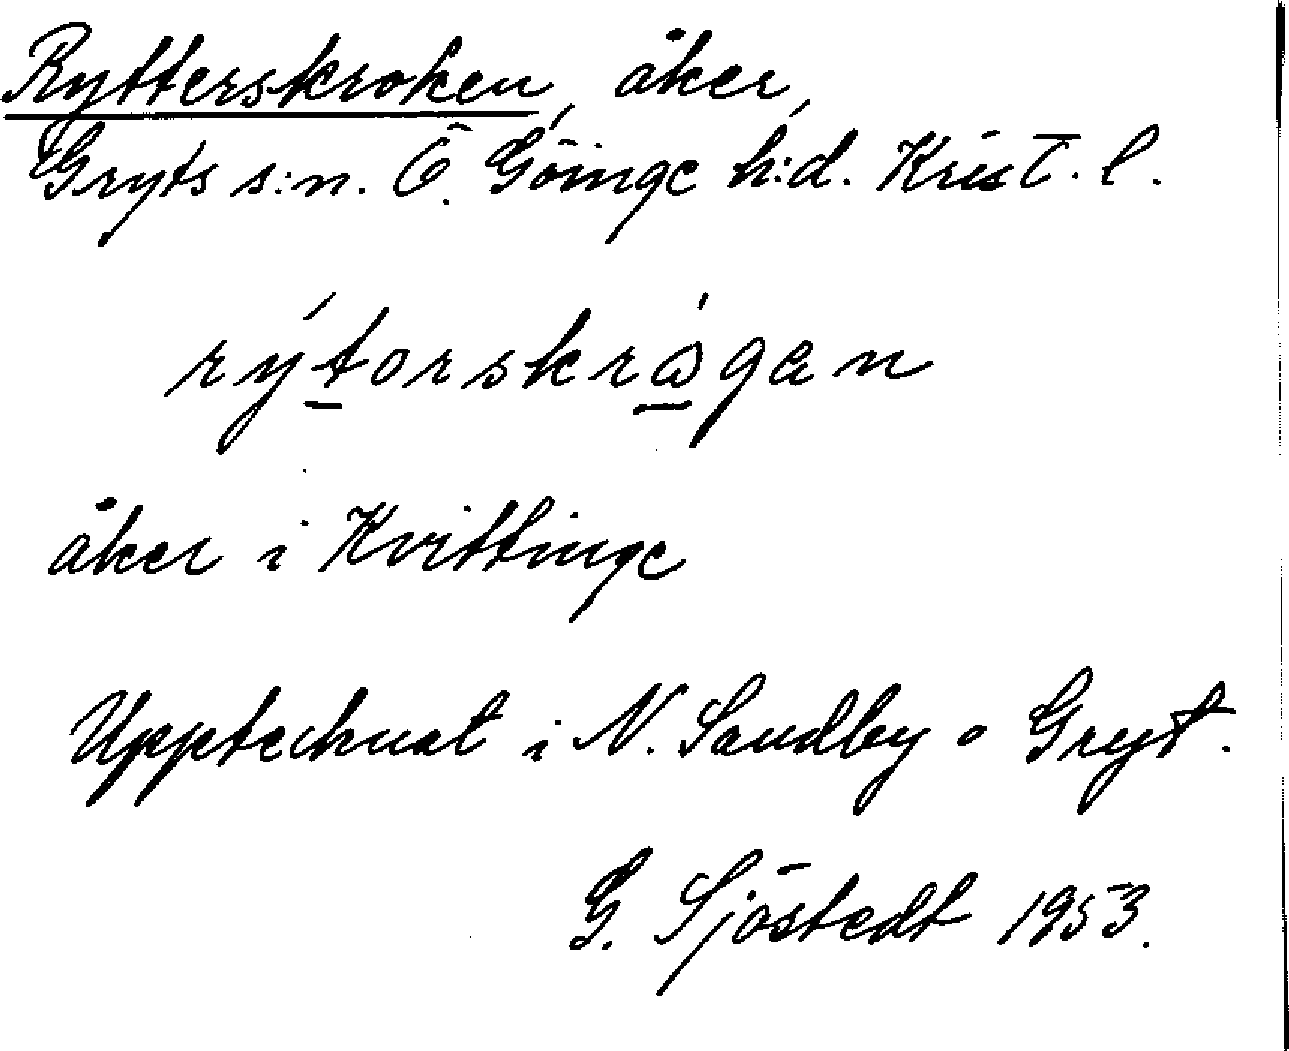 Rytterskroken, åker,
Gryts s:n. Ö. Göinge h:d. Krist. l.
rýt̲orskrà̲gan
åker i Kvittinge
Upptecknat i N. Sandby o Gryt.
G. Sjöstedt 1953.